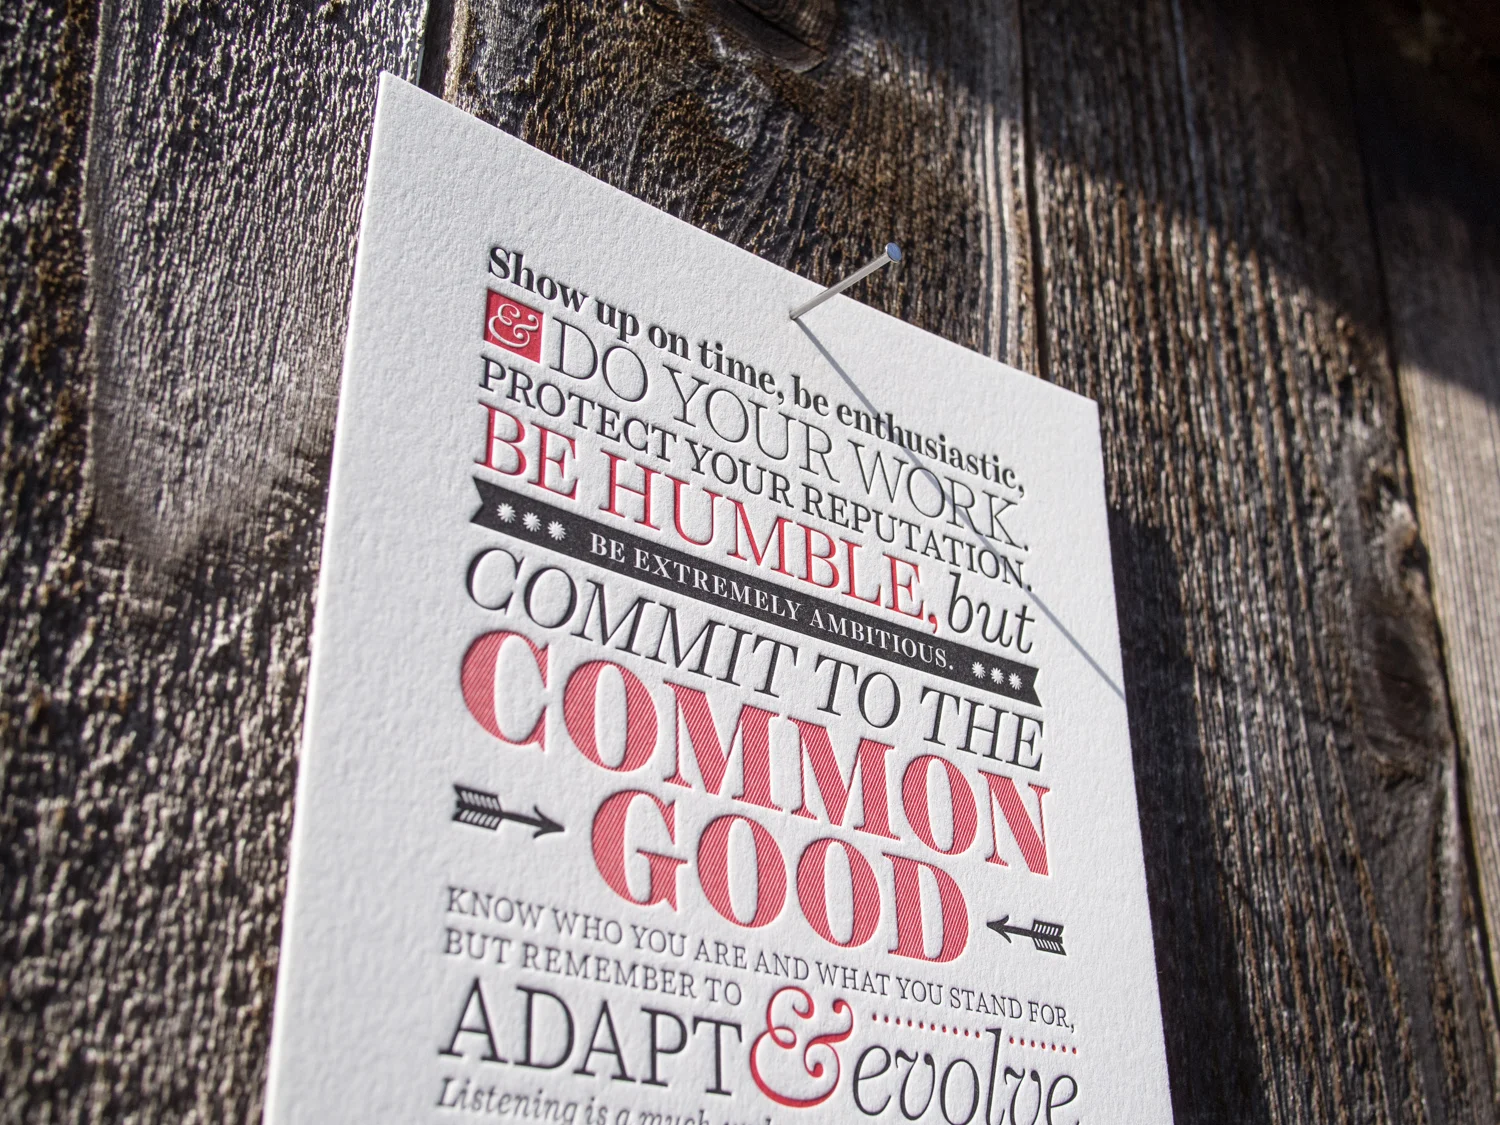 Show up on time, be enthusiastic,
& DO YOUR WORK.
PROTECT YOUR REPUTATION.
BE HUMBLE, but
BE EXTREMELY AMBITIOUS.
COMMIT TO THE
COMMON
GOOD
KNOW WHO YOU ARE AND WHAT YOU STAND FOR,
BUT REMEMBER TO
ADAPT & evolve
Listening is a much